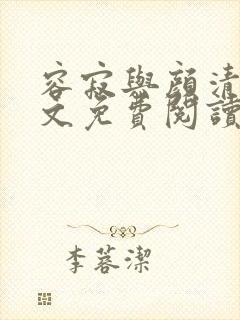 容寂與顏清
文免費閱讀
李蓉潔